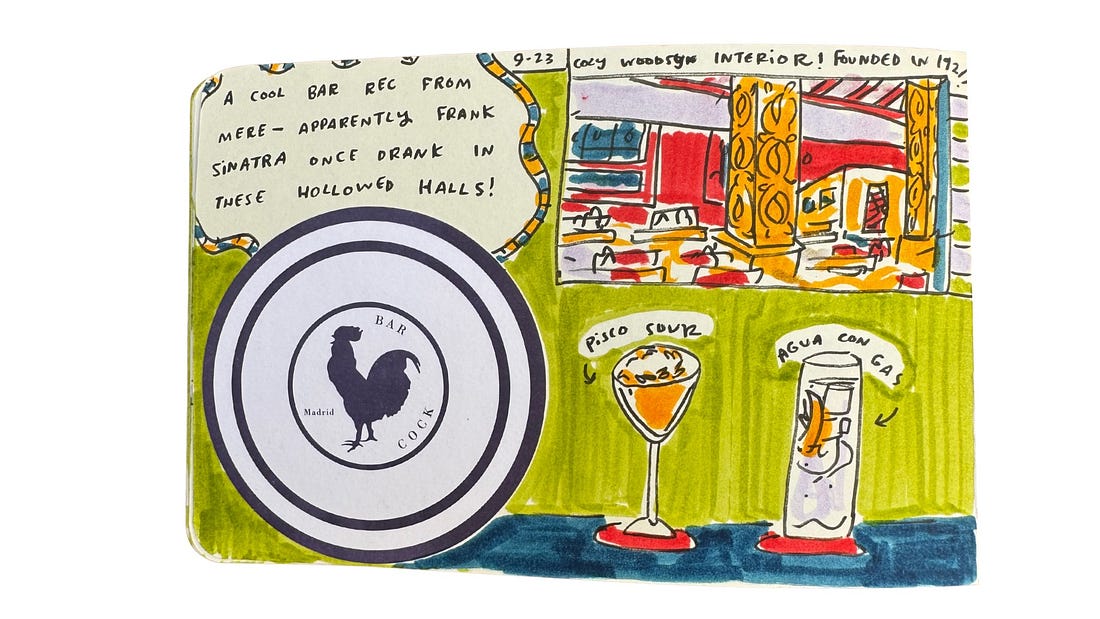 A COOL BAR REC FROM
MERE— APPARENTLY FRANK
SINATRA ONCE DRANK IN
THESE HOLLOWED HALLS!
9-23
COZY WOODSY INTERIOR! FOUNDED IN 1921,
BAR
COCK
Madrid
PISCO SOUR
AGUA CON GAS